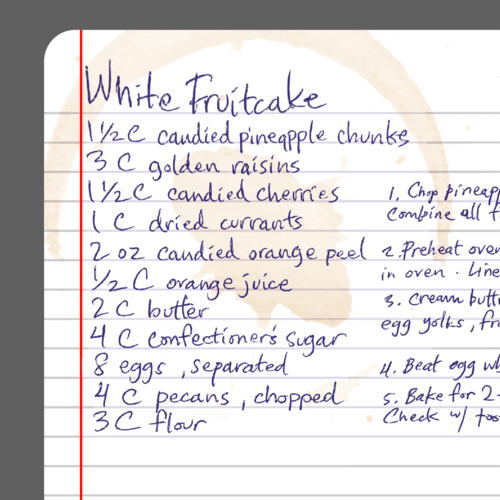 White Fruitcake
1 1/2 C candied pineapple chunks
3 C golden raisins
1 1/2 C candied cherries
1 C dried currants
2 oz candied orange peel
1/2 C orange juice
2 C butter
4 C confectioner's sugar
8 eggs, separated
4 C pecans, chopped
3 C flour
1. Chop pineapp
Combine all
2. Preheat oven
in oven. Line
3. Cream butt
egg yolks, fr
4. Beat egg wh
5. Bake for 2-
Check w/ too